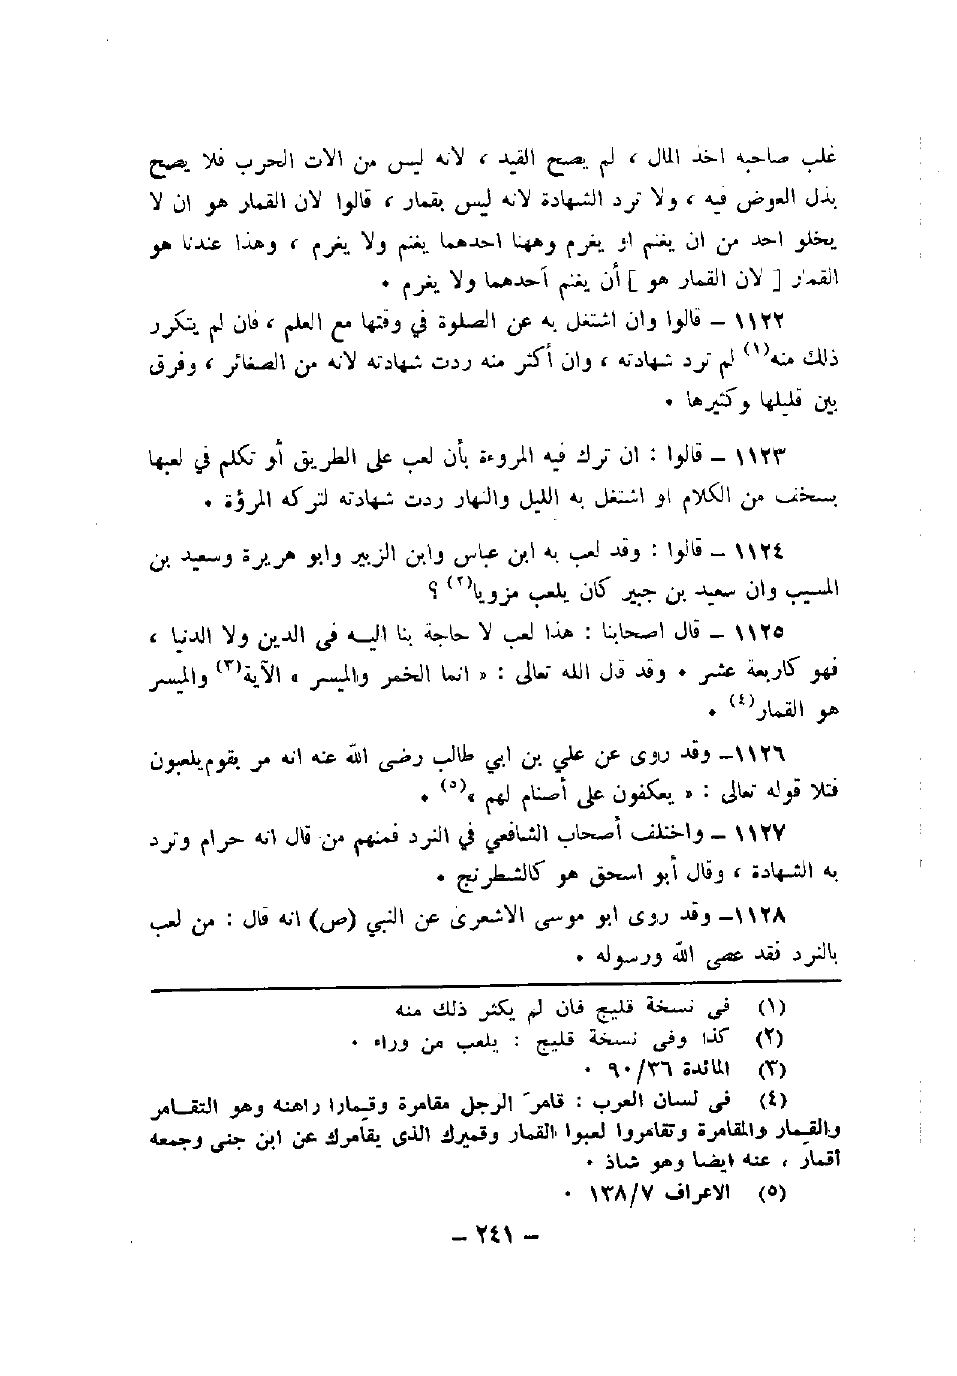 غلب صاحبه اخذ المال ، لم يصح القيد ، لانه ليس من الات الحرب فلا يصح
بذل العوض فيه ، ولا ترد الشهادة لانه ليس بقمار ، قالوا لان القمار هو ان لا
يخلو احد من ان يغنم او يغرم وههنا احدهما يغنم ولا يغرم ، وهذا عندنا هو
القمار [ لان القمار هو ] أن يغنم أحدهما ولا يغرم .
١١٢٢ – قالوا وان اشتغل به عن الصلوة في وقتها مع العلم ، فان لم يتكرر
ذلك منه(١) لم ترد شهادته ، وان أكثر منه ردت شهادته لانه من الصغائر ، وفرق
بين قليلها وكثيرها .
١١٢٣ – قالوا : ان ترك فيه المروءة بأن لعب على الطريق أو تكلم في لعبها
بسخف من الكلام او اشتغل به الليل والنهار ردت شهادته لتركه المرؤة .
١١٢٤ – قالوا : وقد لعب به ابن عباس وابن الزبير وابو هريرة وسعيد بن
المسيب وان سعيد بن جبير كان يلعب مزويا(٢) ؟
١١٢٥ – قال اصحابنا : هذا لعب لا حاجة بنا اليه فى الدين ولا الدنيا ،
فهو كاربعة عشر . وقد قال الله تعالى : « انما الخمر والميسر » الآية(٣) والميسر
هو القمار(٤) .
١١٢٦– وقد روى عن علي بن ابي طالب رضى الله عنه انه مر بقوم يلعبون
فتلا قوله تعالى : « يعكفون على أصنام لهم »(٥) .
١١٢٧ – واختلف أصحاب الشافعي في النرد فمنهم من قال انه حرام وترد
به الشهادة ، وقال أبو اسحق هو كالشطرنج .
١١٢٨– وقد روى ابو موسى الاشعرى عن النبي (ص) انه قال : من لعب
بالنرد فقد عصى الله ورسوله .
(١) فى نسخة قليج فان لم يكثر ذلك منه
(٢) كذا وفى نسخة قليج : يلعب من وراء .
(٣) المائدة ٩٠/٣٦ .
(٤) فى لسان العرب : قامرَ الرجل مقامرة وقيمارا راهنه وهو التقامر
والقيمار والمقامرة وتقامروا لعبوا القمار وقميرك الذى يقامرك عن ابن جنى وجمعه
أقمار ، عنه ايضا وهو شاذ .
(٥) الاعراف ١٣٨/٧ .
– ٢٤١ –